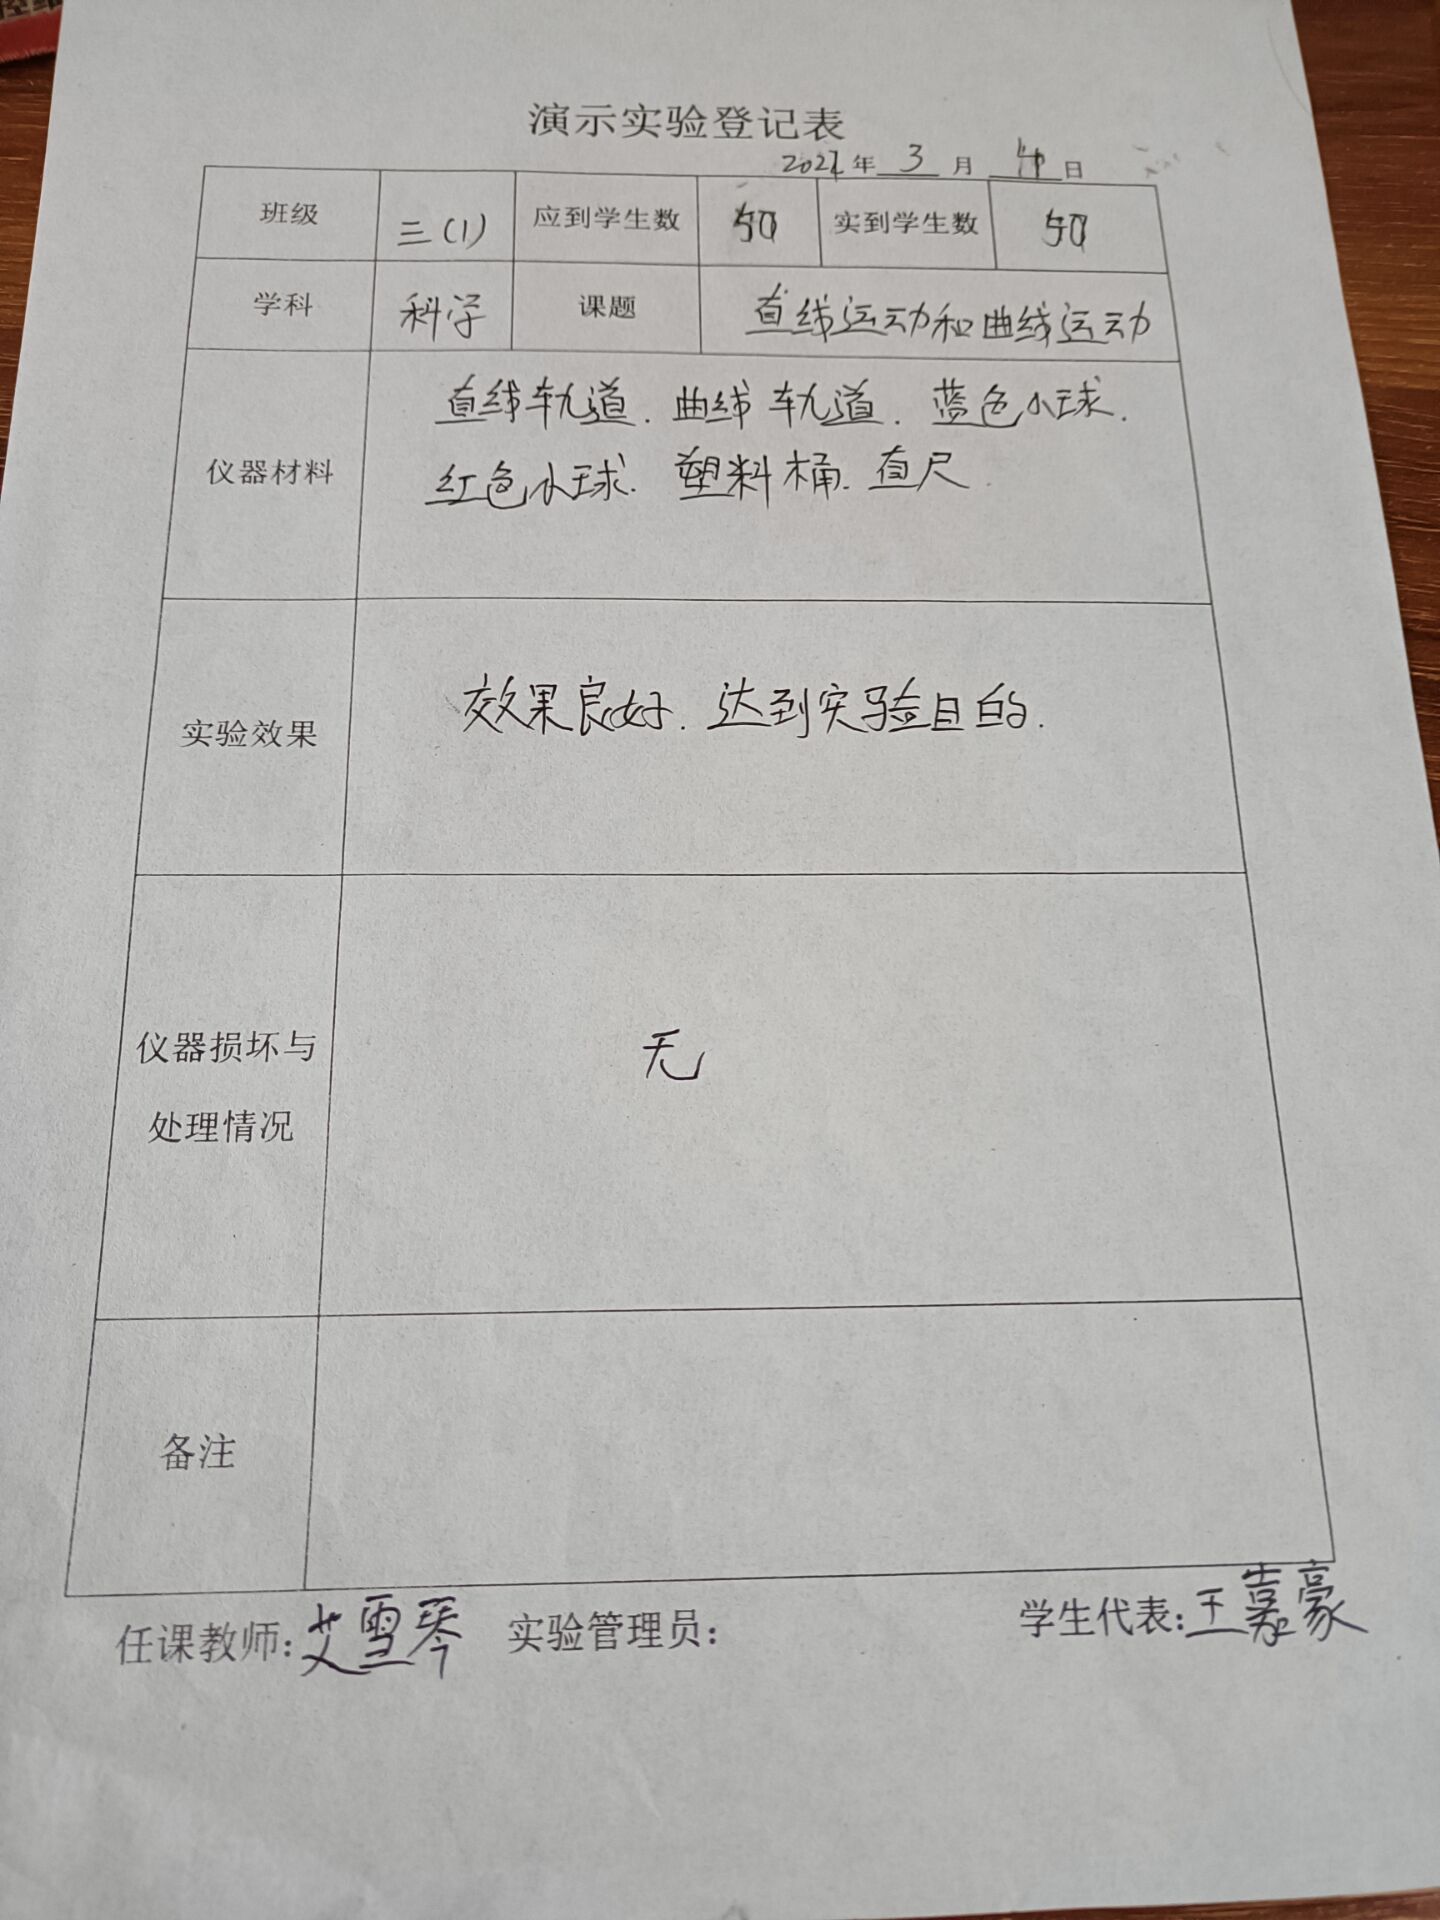 演示实验登记表
年 3 月 日
班级 三(1) 应到学生数 50 实到学生数 50
学科 科学 课题 直线运动和曲线运动
仪器材料 直线轨道. 曲线轨道. 蓝色小球.
红色小球. 塑料桶. 直尺.
实验效果 效果良好. 达到实验目的.
仪器损坏与
处理情况
无
备注
任课教师: 艾雪琴 实验管理员: 学生代表: 王嘉豪